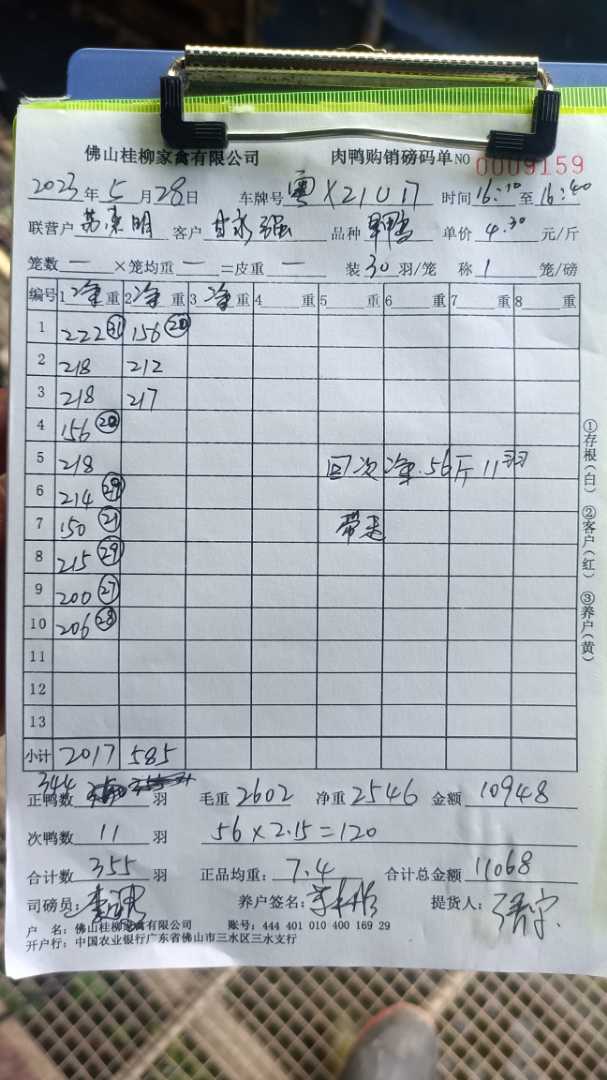 佛山桂柳家禽有限公司 肉鸭购销磅码单NO 0009159
2023年5月28日 车牌号 粤X21U17 时间16:10至16:40
联营户 客户 甘永强 品种 单价 4.30 元/斤
笼数 一 ×笼均重 一 =皮重 一 装30羽/笼 称1笼/磅
编号 1净重 2净重 3净重 4重 5重 6重 7重 8重
1 222 31 156 20
2 218 212
3 218 217
4 156 20
5 218 次净.56斤11羽
6 214 29
7 150 21 带走
8 215 29
9 200 27
10 206 28
11
12
13
小计 2017 585
正鸭数 344 羽 毛重 2602 净重 2546 金额 10948
次鸭数 11 羽 56×2.15=120
合计数 355 羽 正品均重: 7.4 合计总金额 11068
司磅员: 养户签名: 提货人:
户 名: 佛山桂柳家禽有限公司 账号: 444 401 010 400 169 29
开户行: 中国农业银行广东省佛山市三水区三水支行
①存根(白) ②客户(红) ③养户(黄)